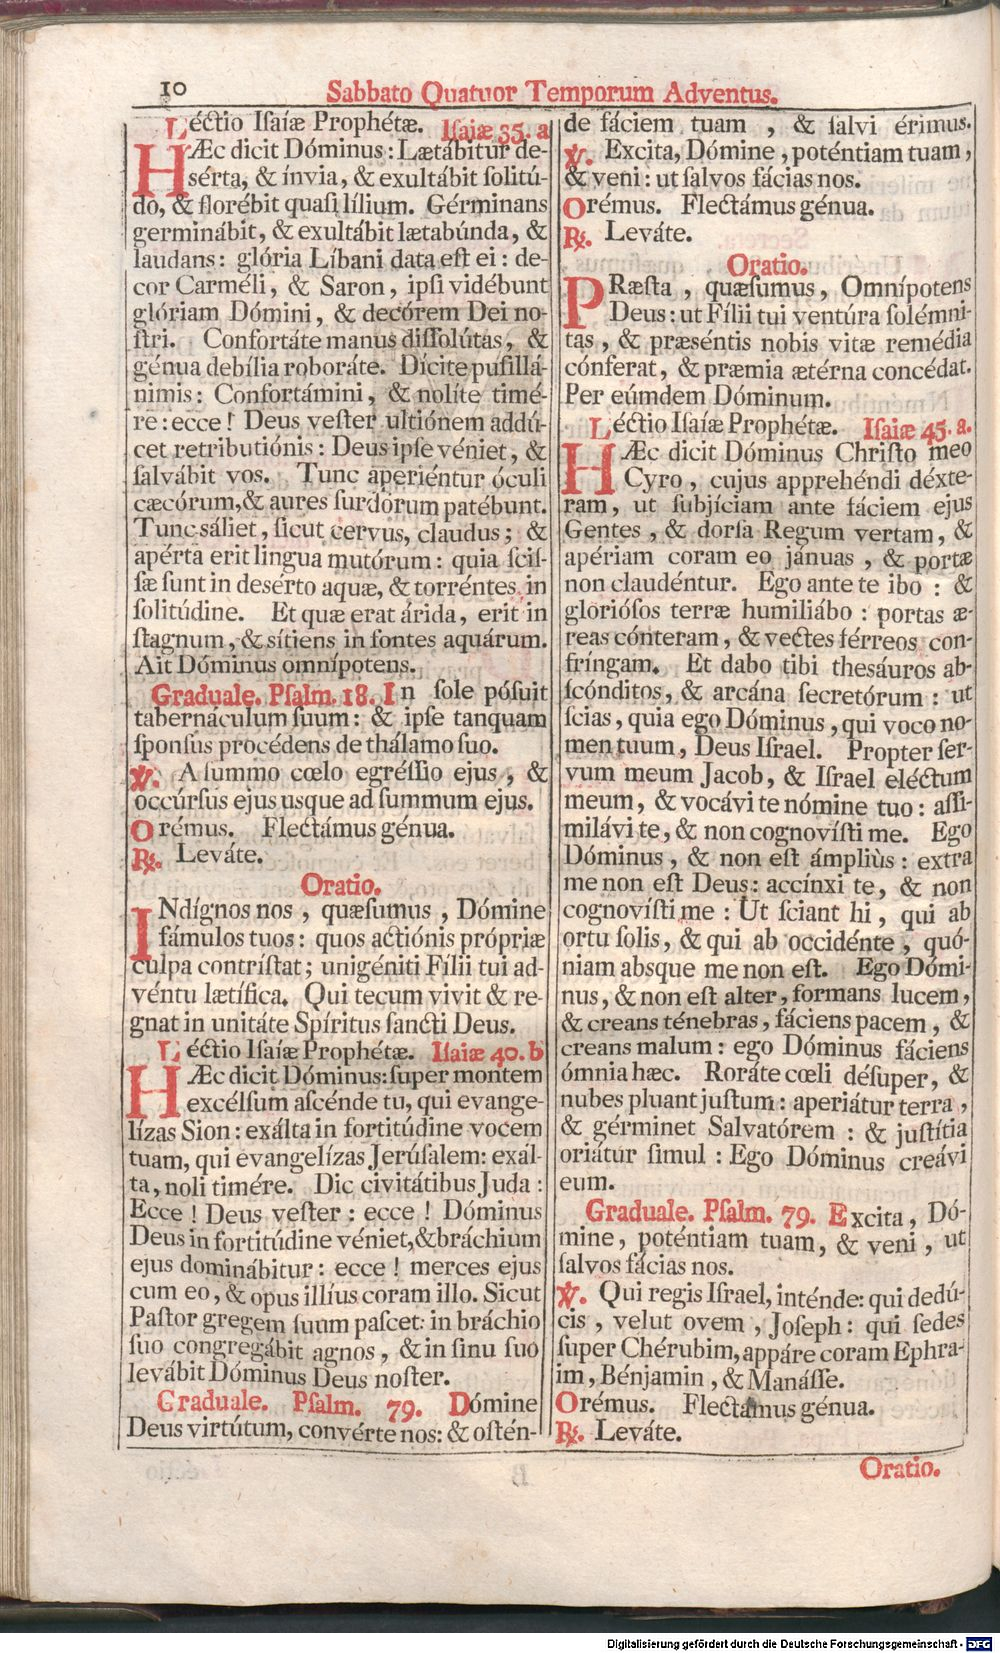 10
Sabbato Quatuor Temporum Adventus.
Léctio Iſaíæ Prophétæ. Iſaiæ 35. a
HÆc dicit Dóminus: Lætábitur de-
sérta, & ínvia, & exultábit ſolitú-
do, & florébit quaſi lílium. Gérminans
germinábit, & exultábit lætabúnda, &
laudans: glória Líbani data eſt ei: de-
cor Carméli, & Saron, ipſi vidébunt
glóriam Dómini, & decórem Dei no-
ſtri. Confortáte manus diſſolútas, &
génua debília roboráte. Dícite puſillá-
nimis: Confortámini, & nolíte timé-
re: ecce! Deus veſter ultiónem addú-
cet retributiónis: Deus ipſe véniet, &
ſalvábit vos. Tunc aperiéntur óculi
cæcórum, & aures ſurdórum patébunt.
Tunc sáliet, ſicut cervus, claudus; &
apérta erit lingua mutórum: quia ſciſ-
ſæ ſunt in desérto aquæ, & torréntes in
ſolitúdine. Et quæ erat árida, erit in
ſtagnum, & sítiens in fontes aquárum.
Ait Dóminus omnípotens.
Graduale. Pſalm. 18. In ſole póſuit
tabernáculum ſuum: & ipſe tanquam
ſponſus procédens de thálamo ſuo.
℣. A ſummo cœlo egréſſio ejus, &
occúrſus ejus usque ad ſummum ejus.
Orémus. Flectámus génua.
℟. Leváte.
Oratio.
INdígnos nos, quæſumus, Dómine
fámulos tuos: quos actiónis própriæ
culpa contríſtat; unigéniti Fílii tui ad-
véntu lætífica. Qui tecum vivit & re-
gnat in unitáte Spíritus ſancti Deus.
Léctio Iſaíæ Prophétæ. Iſaiæ 40. b
HÆc dicit Dóminus: ſuper montem
excélſum aſcénde tu, qui evange-
lízas Sion: exálta in fortitúdine vocem
tuam, qui evangelízas Jerúſalem: exál-
ta, noli timére. Dic civitátibus Juda:
Ecce! Deus veſter: ecce! Dóminus
Deus in fortitúdine véniet, & bráchium
ejus dominábitur: ecce! merces ejus
cum eo, & opus illíus coram illo. Sicut
Paſtor gregem ſuum paſcet: in bráchio
ſuo congregábit agnos, & in ſinu ſuo
levábit Dóminus Deus noſter.
Graduale. Pſalm. 79. Dómine
Deus virtútum, convérte nos: & oſtén-
de fáciem tuam, & ſalvi érimus.
℣. Excita, Dómine, poténtiam tuam,
& veni: ut ſalvos fácias nos.
Orémus. Flectámus génua.
℟. Leváte.
Oratio.
PRæſta, quæſumus, Omnípotens
Deus: ut Fílii tui ventúra ſolémni-
tas, & præséntis nobis vitæ remédia
cónferat, & præmia ætérna concédat.
Per eúmdem Dóminum.
Léctio Iſaíæ Prophétæ. Iſaiæ 45. a.
HÆc dicit Dóminus Chriſto meo
Cyro, cujus apprehéndi déxte-
ram, ut ſubjíciam ante fáciem ejus
Gentes, & dorſa Regum vertam, &
apériam coram eo jánuas, & portæ
non claudéntur. Ego ante te ibo: &
glorióſos terræ humiliábo: portas æ-
reas cónteram, & vectes férreos con-
fríngam. Et dabo tibi thesáuros ab-
ſcónditos, & arcána ſecretórum: ut
ſcias, quia ego Dóminus, qui voco no-
men tuum, Deus Iſrael. Propter ſer-
vum meum Jacob, & Iſrael eléctum
meum, & vocávi te nómine tuo: aſſi-
milávi te, & non cognovíſti me. Ego
Dóminus, & non eſt ámpliùs: extra
me non eſt Deus: accínxi te, & non
cognovíſti me: Ut ſciant hi, qui ab
ortu ſolis, & qui ab occidénte, quó-
niam absque me non eſt. Ego Dómi-
nus, & non eſt alter, formans lucem,
& creans ténebras, fáciens pacem, &
creans malum: ego Dóminus fáciens
ómnia hæc. Roráte cœli désuper, &
nubes pluant juſtum: aperiátur terra,
& gérminet Salvatórem: & juſtítia
oriátur ſimul: Ego Dóminus creávi
eum.
Graduale. Pſalm. 79. Excita, Dó-
mine, poténtiam tuam, & veni, ut
ſalvos fácias nos.
℣. Qui regis Iſrael, inténde: qui dedú-
cis, velut ovem, Joſeph: qui ſedes
ſuper Chérubim, appáre coram Ephra-
im, Bénjamin, & Manáſſe.
Orémus. Flectámus génua.
℟. Leváte.
Oratio.
Digitalisierung gefördert durch die Deutsche Forschungsgemeinschaft - DFG